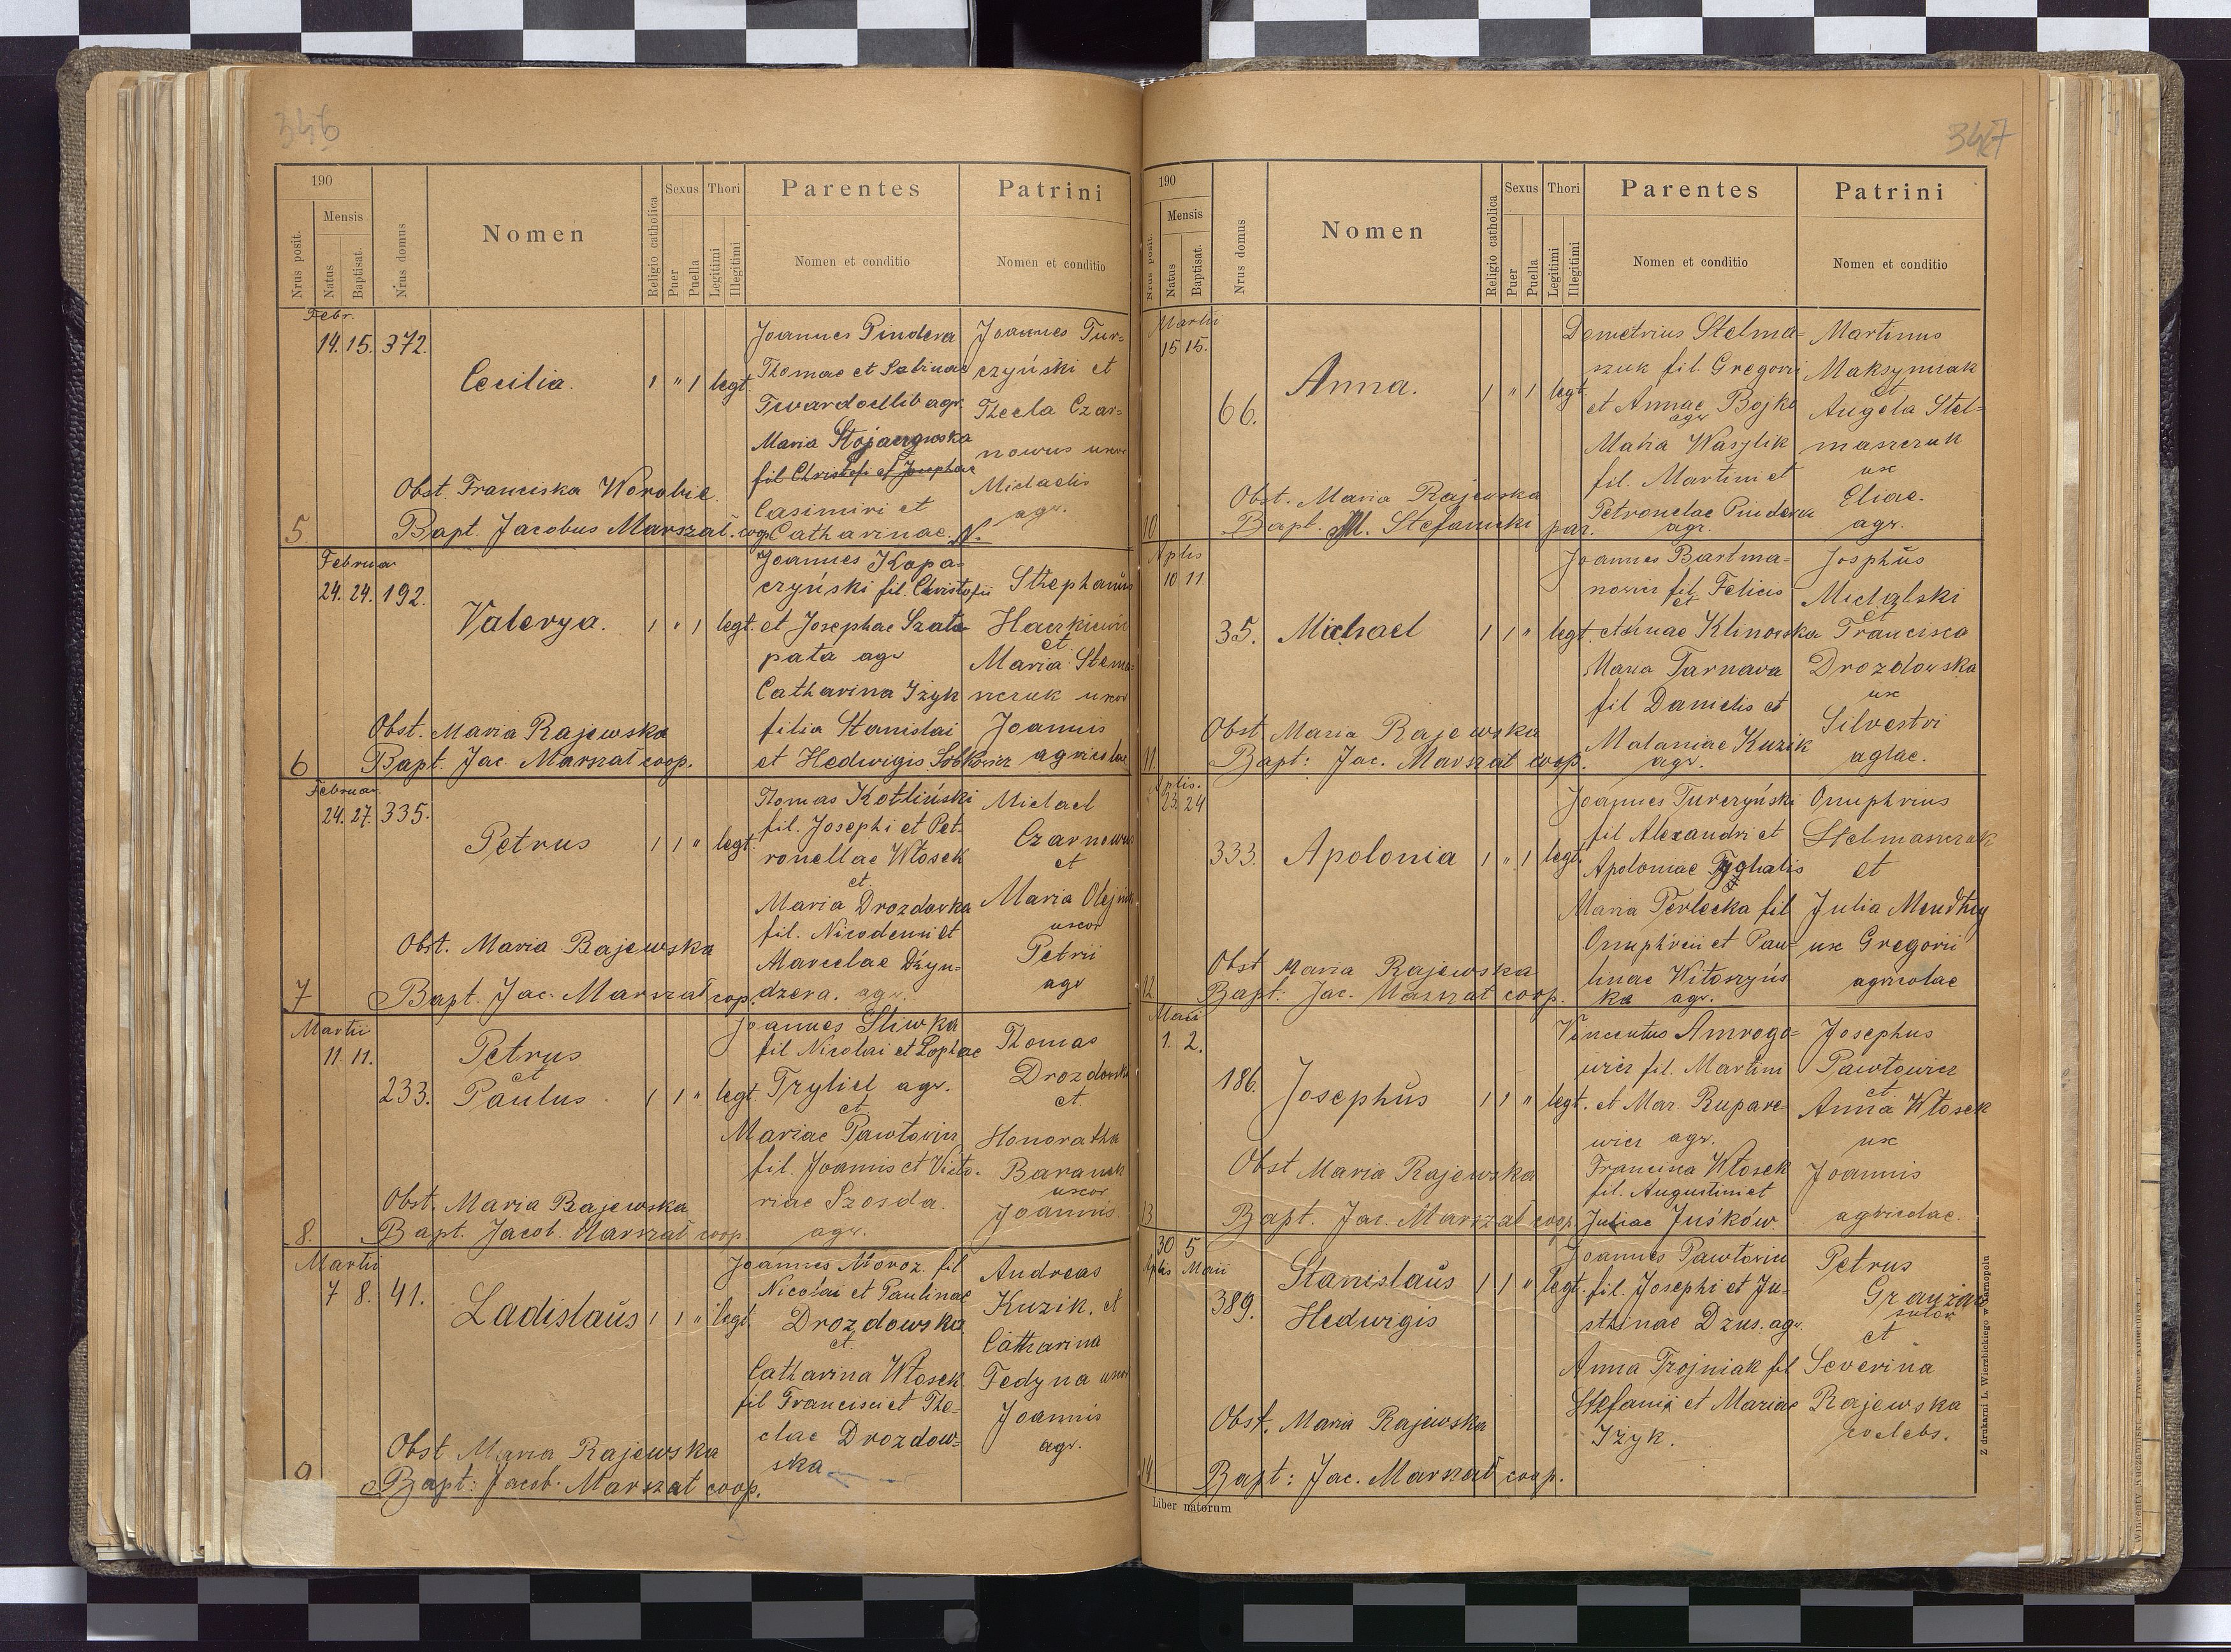 346
190
Nrus posit.
Mensis
Natus
Baptisat.
Nrus domus
Nomen
Religio catholica
Sexus
Puer
Puella
Thori
Legitimi
Illegitimi
Parentes
Nomen et conditio
Patrini
Nomen et conditio
Febr.
14. 15. 372.
Cecilia.
1 " 1 legt.
Joannes Pindera
Thomae et Sabinae
agr.
Maria
fil Christofi et Josephae
Casimiri et
Catharinae N.
Joannes Tur-
czyński et
Thecla Czar-
nowus uxor
Michaelis
agr.
Obst. Franciska Worobie
5. Bapt. Jacobus Marszał. coop.
Februar
24. 24. 192.
Valerya.
1 " 1 legt.
Joannes Kopa-
czyński fil. Christofii
et Josephae Szała-
pata agr
Catharina Iżyk
filia Stanislai
et Hedwigis Sobkowicz
Stephanus
Haczkiewicz
et
Maria Stema-
szczuk uxor
Joannis
agricolae
Obst. Maria Rajewska
6 Bapt. Jac. Marszał coop.
Februar.
24. 27. 335.
Petrus
1 1 " legt.
Thomas Kotliński
fil. Josephi et Pet-
ronellae Włosek
et.
Maria Drozdovka
fil. Nicodemi et
Marcelae Dżyn-
dzera. agr.
Michael
Czarnowus
et
Maria Olejnik
uxor
Petrii
agr
Obst. Maria Rajewska
7 Bapt. Jac. Marszał cop.
Martii
11. 11.
233.
Petrus
et
Paulus
1 1 " legt.
Joannes Śliwka
fil Nicolai et Sophiae
Trylich agr.
et
Mariae Pawłowicz
fil. Joannis et Victo-
riae Szosda.
agr.
Thomas
Drozdowski
et
Honoratha
Baranek
uxor
Joannis
Obst. Maria Rajewska
8. Bapt. Jacob. Marszał coop.
Martii
7 8. 41.
Ladislaus
1 1 " legt.
Joannes Moroz. fil
Nicolai et Paulinae
Drozdowska
et.
Catharina Włosek
fil Francisci et The-
clae Drozdow-
ska
Andreas
Kuzik. et
Catharina
Fedyna uxor
Joannis
agr.
Obst Maria Rajewska
9 Bapt: Jacob. Marszał coop.
347
190
Nrus posit.
Mensis
Natus
Baptisat.
Nrus domus
Nomen
Religio catholica
Sexus
Puer
Puella
Thori
Legitimi
Illegitimi
Parentes
Nomen et conditio
Patrini
Nomen et conditio
Martii
15 15.
66.
Anna.
1 " 1 legt.
Demetrius Stelma-
szuk fil. Gregorii
et Annae Bojko
agr
Maria Wasylik
fil. Martini et
Petronelae Pindera
agr.
Martinus
Maksymiak
et
Angela Stel-
maszczuk
ux
Eliae.
agr.
Obst. Maria Rajewska
10 Bapt. M. Stefanicki par.
Aplis
10 11.
35. Michael
1 1 " legt.
Joannes Bartma-
nowicz fil. Felicis
et
Annae Klinowska
Maria Tarnava
fil Danielis et
Malaniae Kuzik
agr.
Josphus
Michalski
et
Francisca
Drozdowska
ux
Silvestri
aglae.
Obst Maria Rajewska
11 Bapt: Jac. Marszał coop.
Aplis.
23. 24
333. Apolonia
1 " 1 legt.
Joannes Turczyński
fil Alexandri et
Apoloniae
Maria Perlecka fil
Onuphreii et Pau-
linae Witoszyńs-
ka agr.
Onuphrius
Stelmaszczuk
et
Julia
ux Gregorii
agricolae
Obst Maria Rajewska
12 Bapt: Jac. Marszał coop.
Maii
1. 2.
186. Josephus
1 1 " legt.
Vincentus Amrogo-
wicz fil. Martini
et Mar. Rupare-
wicz agr.
Francisca Włosek
fil. Augustini et
Juliae Juśków.
Josephus
Pawłowicz
et
Anna Włosek
ux
Joannis
agricolae.
Obst Maria Rajewska
13 Bapt. Jac. Marszał coop.
30 5
Aplis Maii
389.
Stanislaus
Hedwigis
1 1 " legt.
Joannes Pawłowicz
fil. Josephi et Ju-
sthinae Dzus. agr.
Anna Trojniak fil
Stefanii et Mariae
Iżyk.
Petrus
sutor
et
Severina
Rajewska
coelebs.
Obst. Maria Rajewska
14 Bapt: Jac. Marszał coop.
Liber natorum
Z drukarni L. Wierzbickiego w Tarnopolu